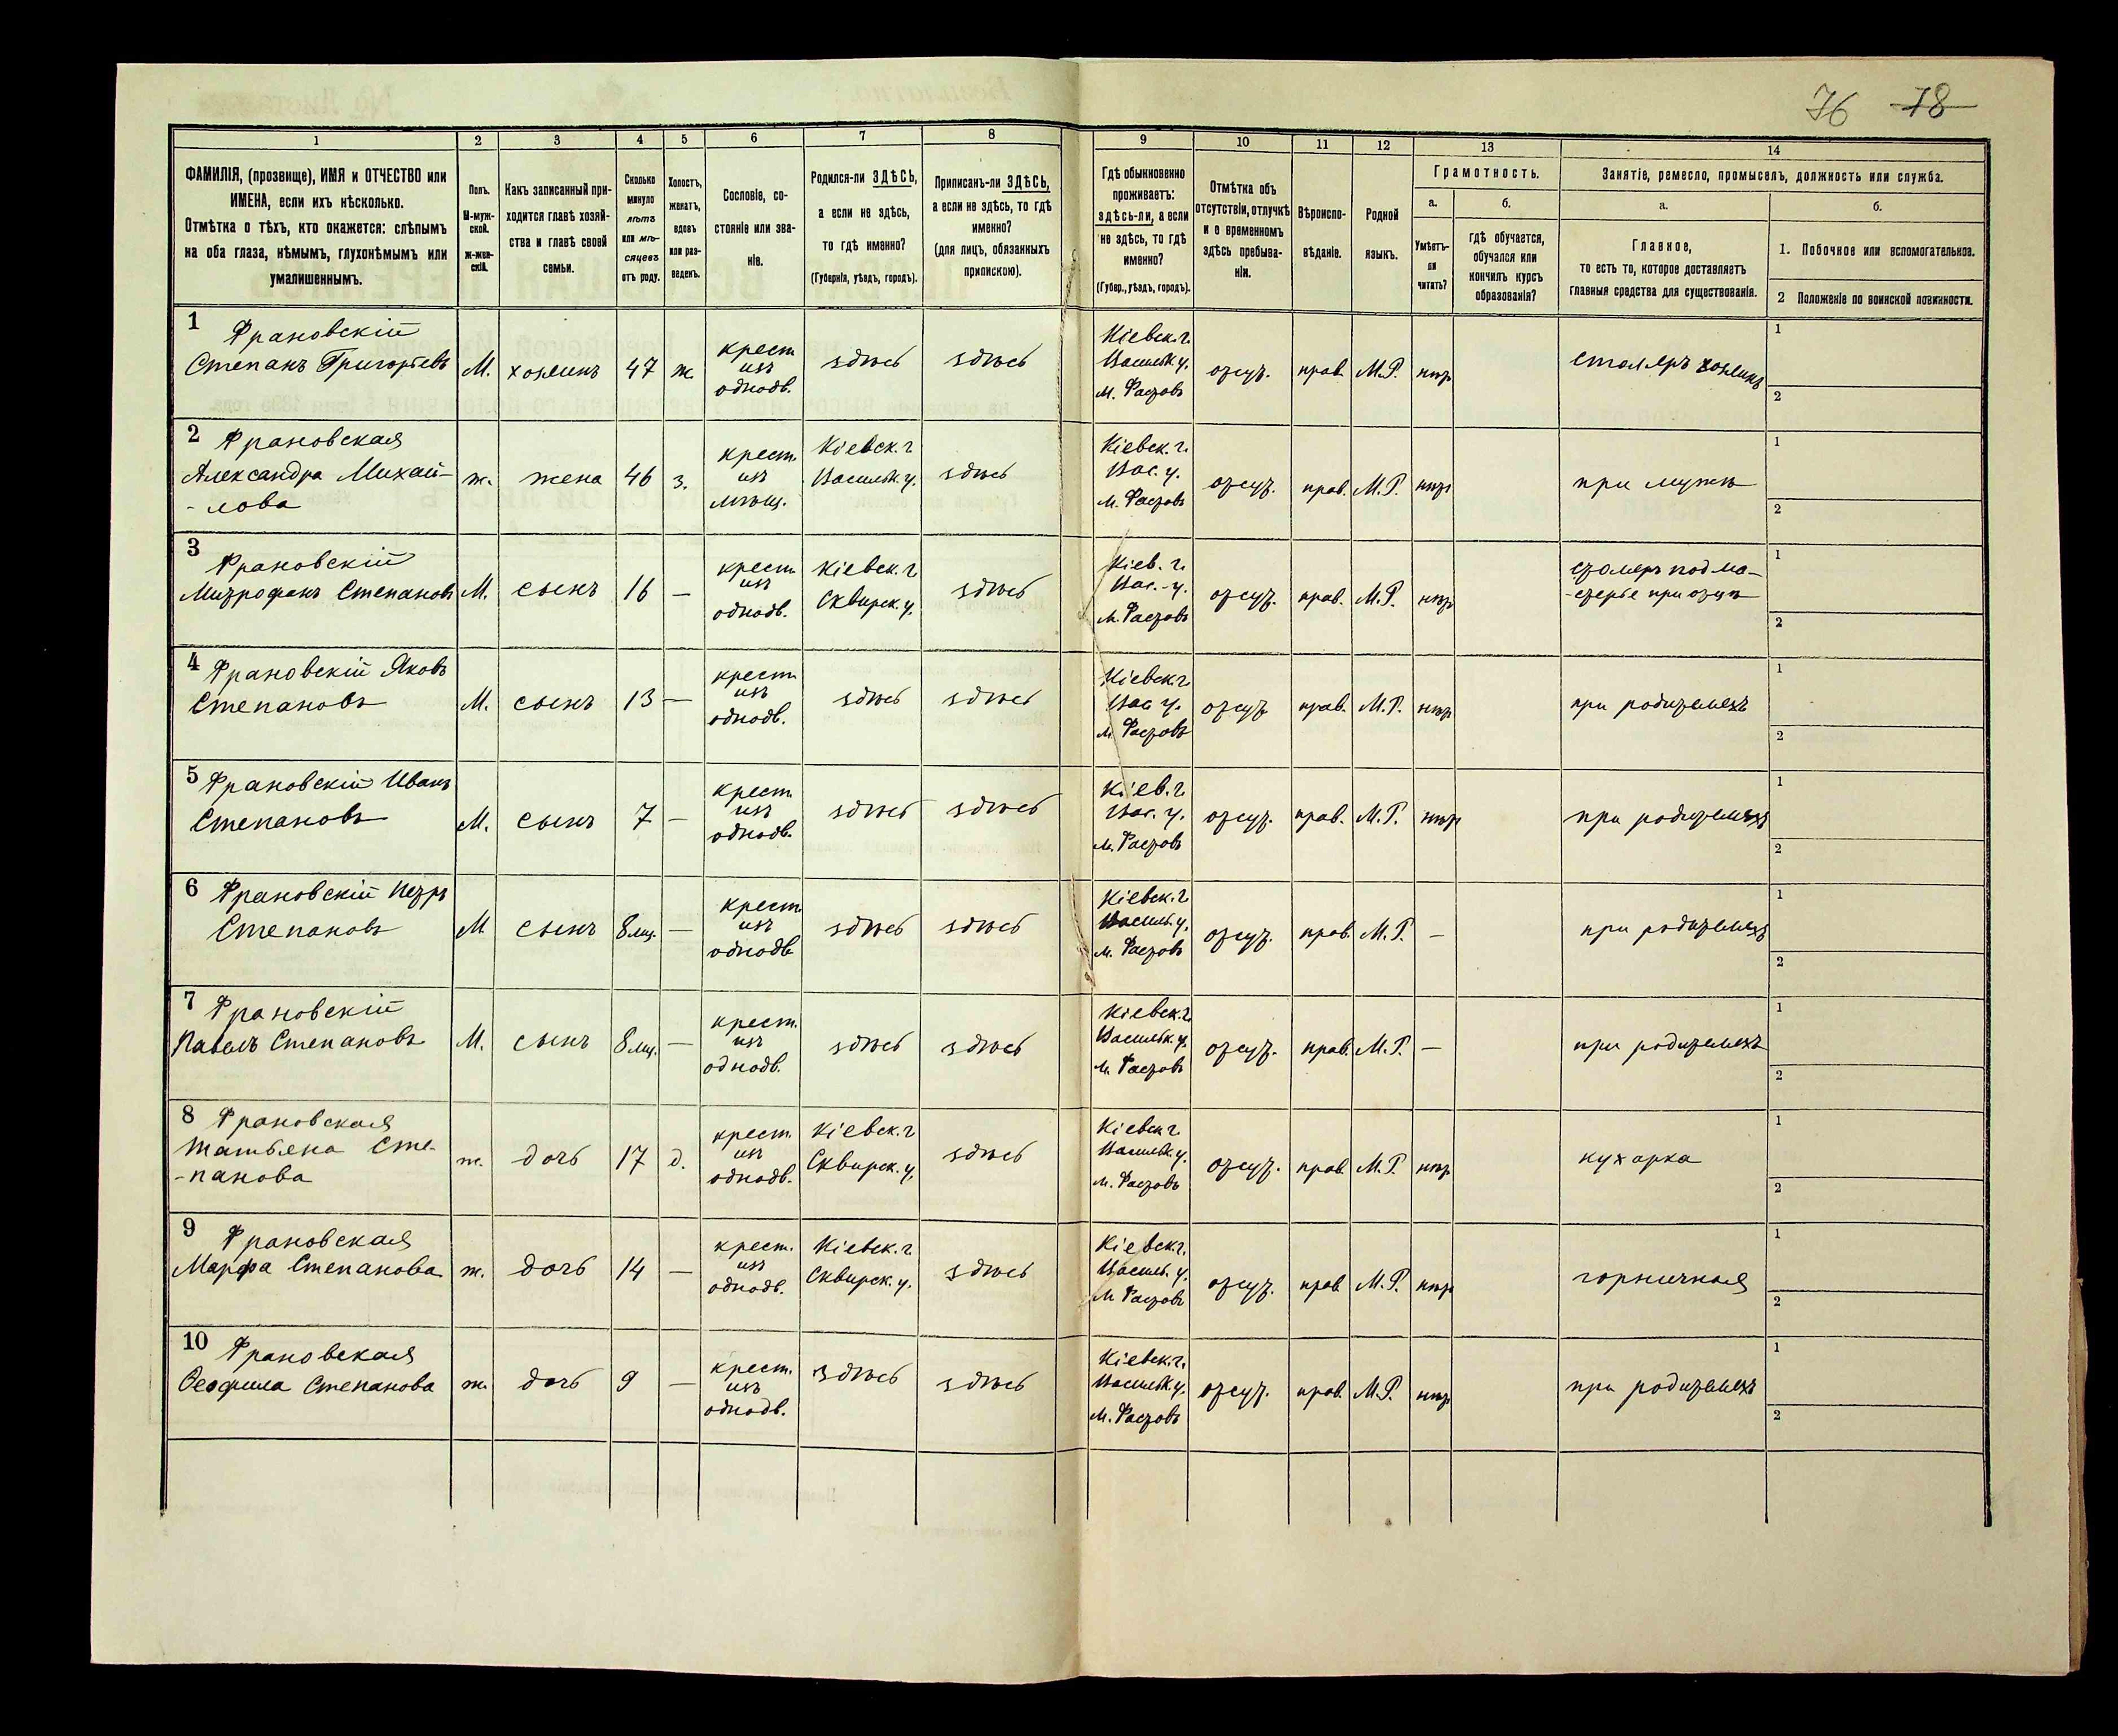 76 78
1 2 3 4 5 6 7 8 9 10 11 12 13 14
ФАМИЛІЯ, (прозвище), ИМЯ и ОТЧЕСТВО или
ИМЕНА, если ихъ нѣсколько.
Отмѣтка о тѣхъ, кто окажется: слѣпымъ
на оба глаза, нѣмымъ, глухонѣмымъ или
умалишеннымъ.
Полъ.
М-муж-
ской.
ж-жен-
скій.
Какъ записанный при-
ходится главѣ хозяй-
ства и главѣ своей
семьи.
Сколько
минуло
лѣтъ
или мѣ-
сяцевъ
отъ роду.
Холостъ,
женатъ,
вдовъ
или раз-
веденъ.
Сословіе, со-
стояніе или зва-
ніе.
Родился-ли ЗДѢСЬ,
а если не здѣсь,
то гдѣ именно?
(Губернія, уѣздъ, городъ).
Приписанъ-ли ЗДѢСЬ,
а если не здѣсь, то гдѣ
именно?
(для лицъ, обязанныхъ
припискою).
Гдѣ обыкновенно
проживаетъ:
здѣсь-ли, а если
не здѣсь, то гдѣ
именно?
(Губер., уѣздъ, городъ).
Отмѣтка объ
отсутствіи, отлучкѣ
и о временномъ
здѣсь пребыва-
ніи.
Вѣроиспо-
вѣданіе.
Родной
языкъ.
Грамотность.
а.
Умѣетъ-
ли
читать?
б.
гдѣ обучается,
обучался или
кончилъ курсъ
образованія?
Занятіе, ремесло, промыселъ, должность или служба.
а.
Главное,
то есть то, которое доставляетъ
главныя средства для существованія.
б.
1. Побочное или вспомогательное.
2 Положеніе по воинской повинности.
1 Франовскій
Степанъ Григорьевъ
М. хозяинъ 47 ж.
крест.
изъ
однодв.
здѣсь здѣсь
Кіевск. г.
Васильк. у.
м. Фастовъ
отсут. прав. М.Р. нѣт
столяръ хозяинъ
1
2
2 Франовская
Александра Михай-
-лова
ж. жена 46 з.
крест.
изъ
мѣщ.
Кіевск. г
Васильк. у.
здѣсь
Кіевск. г.
Вас. у.
м. Фастовъ
отсут. прав. М.Р. нѣт
при мужѣ
1
2
3 Франовскій
Митрофанъ Степановъ
М. сынъ 16 —
крест.
изъ
однодв.
Кіевск. г
Сквирск. у.
здѣсь
Кіев. г.
Вас. у.
м. Фастовъ
отсут. прав. М.Р. нѣт
столяръ подма-
-стерье при отцѣ
1
2
4 Франовскій Яковъ
Степановъ
М. сынъ 13 —
крест.
изъ
однодв.
здѣсь здѣсь
Кіевск. г.
Вас у.
м Фастовъ
отсут прав. М.Р. нѣт
при родителяхъ
1
2
5 Франовскій Иванъ
Степановъ
М. сынъ 7 —
крест.
изъ
однодв.
здѣсь здѣсь
Кіев. г.
Вас. у.
м. Фастовъ
отсут. прав. М.Р. нѣт
при родителяхъ
1
2
6 Франовскій Петръ
Степановъ
М сынъ 8 мц. —
крест.
изъ
однодв
здѣсь здѣсь
Кіевск. г
Васильк. у.
м. Фастовъ
отсут. прав. М.Р. —
при родителяхъ
1
2
7 Франовскій
Павелъ Степановъ
М. сынъ 8 мц. —
крест.
изъ
однодв.
здѣсь здѣсь
Кіевск. г.
Васильк. у.
м. Фастовъ
отсут. прав. М.Р. —
при родителяхъ
1
2
8 Франовская
Татьяна Сте-
-панова
ж. дочь 17 д.
крест.
изъ
однодв.
Кіевск. г
Сквирск. у.
здѣсь
Кіевск г.
Васильк. у.
м. Фастовъ
отсут. прав. М.Р. нѣт
кухарка
1
2
9 Франовская
Марфа Степанова
ж. дочь 14 —
крест.
изъ
однодв.
Кіевск. г
Сквирск. у.
здѣсь
Кіевск г.
Васильк. у.
м Фастовъ
отсут. прав. М.Р. нѣт
горничная
1
2
10 Франовская
Ѳеофила Степанова
ж. дочь 9 —
крест.
изъ
однодв.
здѣсь здѣсь
Кіевск. г.
Васильк у.
м. Фастовъ
отсут. прав. М.Р. нѣт
при родителяхъ
1
2